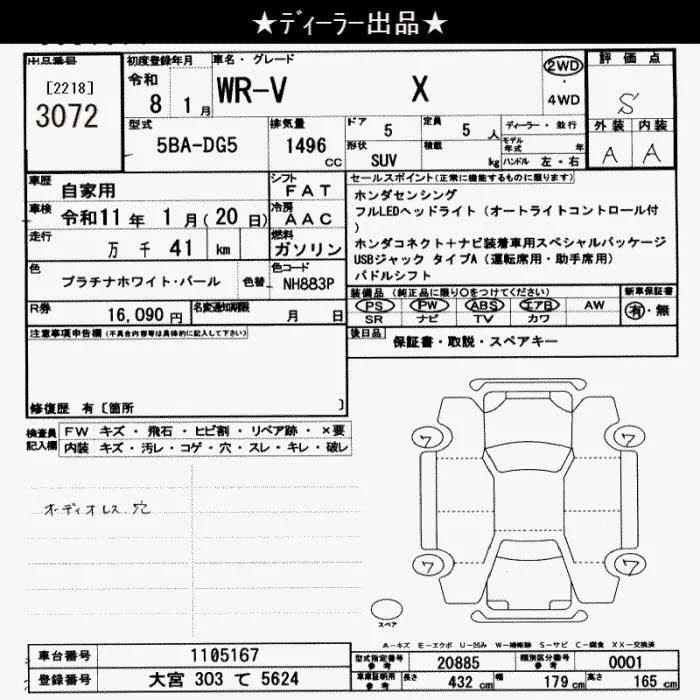 ★ディーラー出品★
出品番号
[2218]
3072
初度登録年月
令和
8 1 月
車名・グレード
WR-V X
2WD
・
4WD
評価点
S
外装 内装
A A
型式
5BA-DG5
排気量
1496
cc
ドア 5
定員 5 人
形状 SUV
積載 kg
ディーラー・並行
モデル年式 年
ハンドル 左・右
車歴 自家用
シフト FAT
車検 令和11年 1月(20日)
冷房 AAC
走行 万 千 41 km
燃料 ガソリン
色 プラチナホワイト・パール
色替
色コード NH883P
R券 16,090 円
名変通知期限 月 日
セールスポイント(正常に機能するものに限ります)
ホンダセンシング
フルLEDヘッドライト(オートライトコントロール付
)
ホンダコネクト+ナビ装着車用スペシャルパッケージ
USBジャック タイプA(運転席用・助手席用)
パドルシフト
装備品(純正品に限り○をつけてください)
PS PW ABS エアB AW
SR ナビ TV カワ
新車保証書
有・無
後日品 保証書・取説・スペアキー
注意事項申告欄(不具合内容等は具体的に記入して下さい)
修復歴 有〔箇所 〕
検査員
記入欄
FW キズ・飛石・ヒビ割・リペア跡・×要
内装 キズ・汚レ・コゲ・穴・スレ・キレ・破レ
オーディオレス穴
ワ ワ
ワ ワ
スペア
A-キズ E-エクボ U-凹み W-補修跡 S-サビ C-腐食 XX-交換済
車台番号 1105167
登録番号 大宮 303 て 5624
型式指定番号
参考
20885
類別区分番号
参考
0001
車庫証明用
参考
長さ 432 cm
幅 179 cm
高さ 165 cm